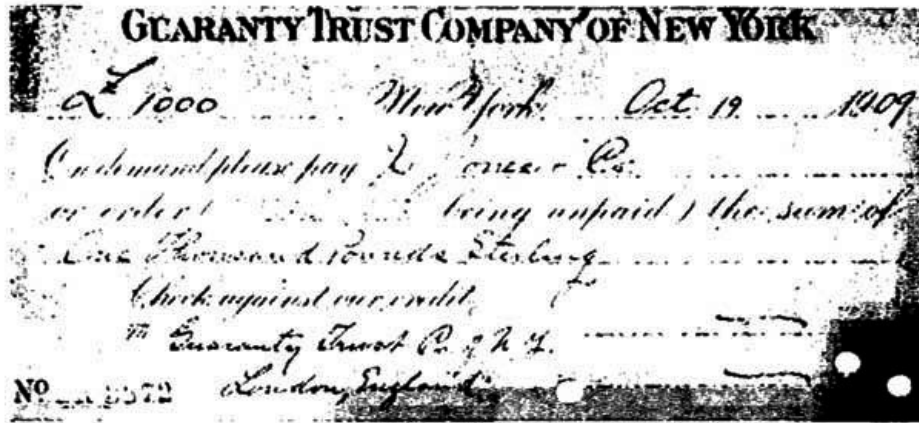 GUARANTY TRUST COMPANY OF NEW YORK
£ 1000 New York Oct 19 1909
On demand please pay & Co.
or order ( being unpaid ) the sum of
One Thousand Pounds Sterling
Check against our credit
To Guaranty Trust Co. of N.Y.
London, England.
No 372